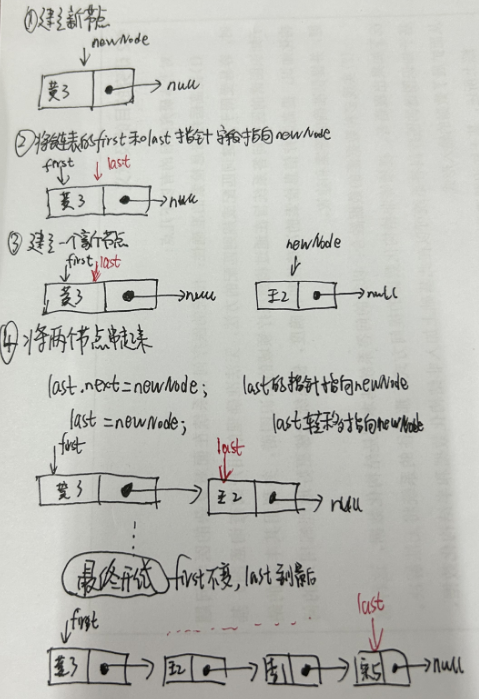 ①建立新节点
newNode
黄3 null
②将链表的first和last指针指向newNode
first last
黄3 null
③建立一个新节点
first last newNode
黄3 null 王2 null
④将两个节点串起来
last.next=newNode; last的指针指向newNode
last=newNode; last 指向newNode
first last
黄3 王2 null
最终形成 first不变,last到最后
first last
黄3 王2 null